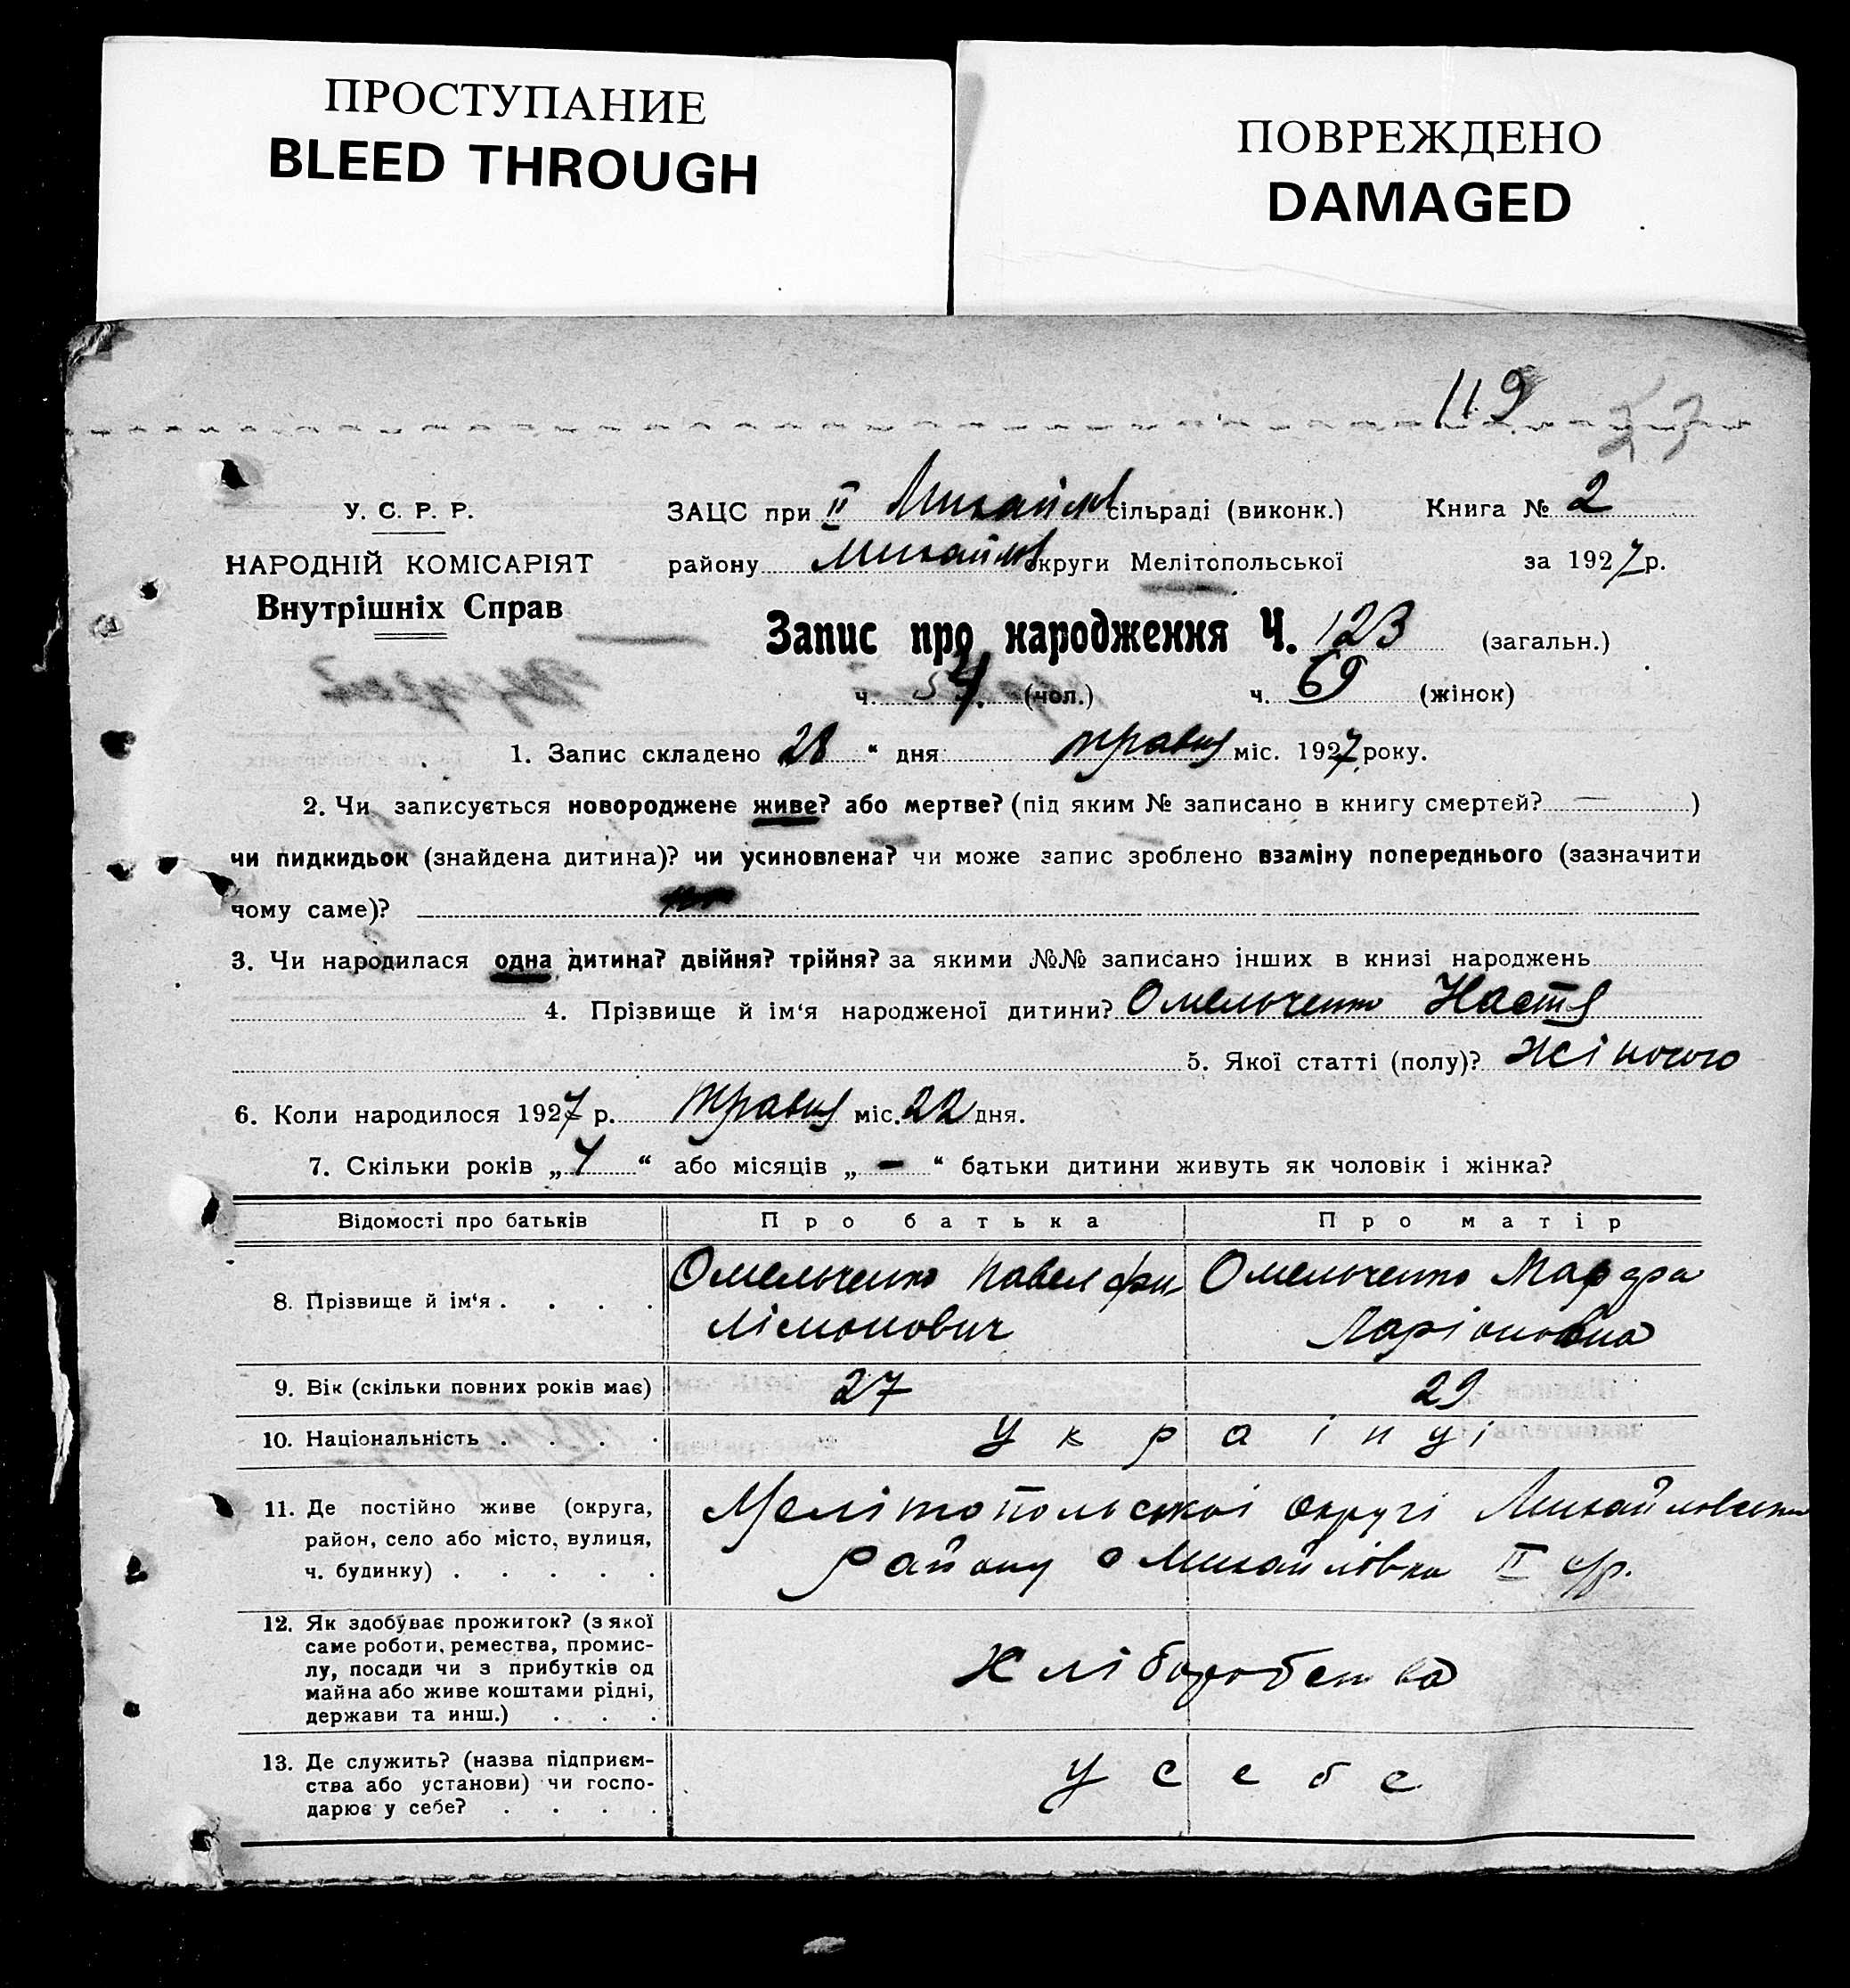 ПРОСТУПАНИЕ
BLEED THROUGH
ПОВРЕЖДЕНО
DAMAGED
119
У. С. Р. Р.
НАРОДНІЙ КОМІСАРІЯТ
Внутрішніх Справ
ЗАЦС при II Михайлов сільраді (виконк.) Книга № 2
району Михайлов округи Мелітопольської за 1927 р.
Запис про народження Ч. 123 (загальн.)
ч. 54. (чол.) ч. 69 (жінок)
1. Запис складено 28 “ дня травня міс. 1927 року.
2. Чи записується новороджене живе? або мертве? (під яким № записано в книгу смертей? — )
чи пидкидьок (знайдена дитина)? чи усиновлена? чи може запис зроблено взаміну попереднього (зазначити
чому саме)?
3. Чи народилася одна дитина? двійня? трійня? за якими №№ записано інших в книзі народжень
4. Прізвище й ім‘я народженої дитини? Омельченко Настя
5. Якої статті (полу)? Жіночого
6. Коли народилося 1927 р. травня міс. 22 дня.
7. Скільки років „ 7 “ або місяців „ – “ батьки дитини живуть як чоловік і жінка?
Відомості про батьків Про батька Про матір
8. Прізвище й ім‘я . . . . Омельченко Павел Фи- Омельченко Марфа
лімонович Ларіоновна
9. Вік (скільки повних років має) 27 29
10. Національність . . . . Українці
11. Де постійно живе (округа, Мелітопольскої округі Михайловского
район, село або місто, вулиця,
ч. будинку) . . . . . району с Михайлівка II с/р.
12. Як здобуває прожиток? (з якої
саме роботи, ремества, промис-
лу, посади чи з прибутків од Хліборобства
майна або живе коштами рідні,
держави та инш.) . . .
13. Де служить? (назва підприєм-
ства або установи) чи госпо- У себе
дарює у себе? . . . .